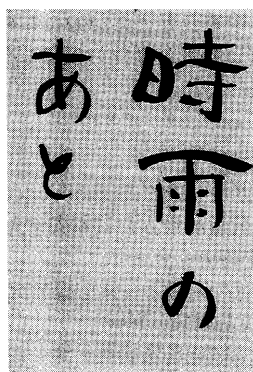 時雨の
あと